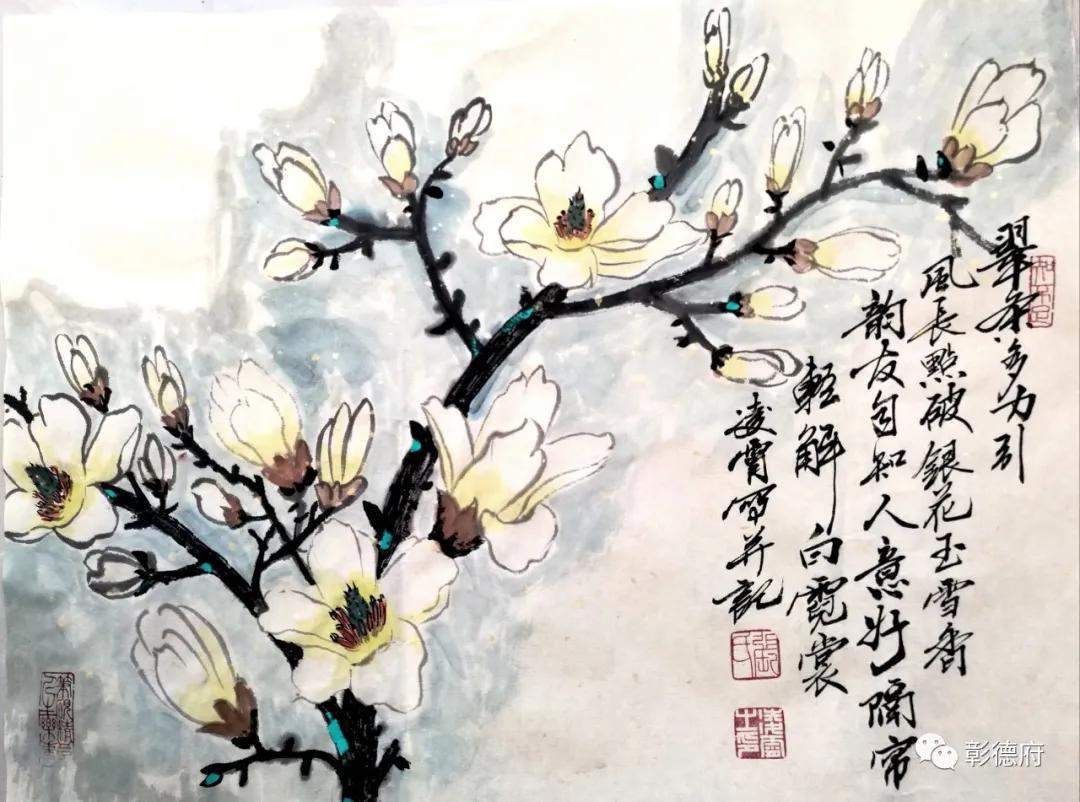 翠条多力引
風長點破銀花玉雪香
韵友自知人意好隔帘
輕解白霓裳
凌霄寫并記
彰德府